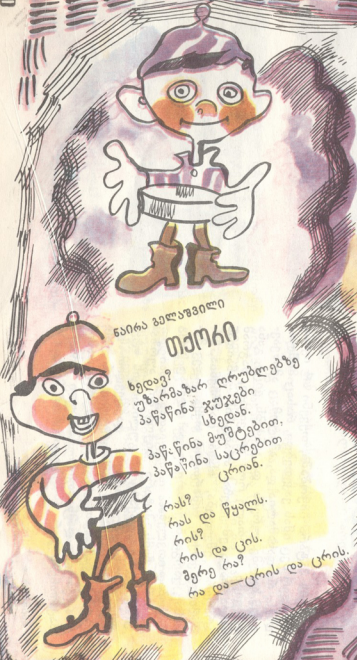 ნაირა გელაშვილი
თქორი
ხედავ?
უზარმაზარ ღრუბლებზე
პაწაწინა ჯუჯები
სხედან.
პაწაწინა მუშტებით,
პაწაწინა საცრებით
ცრიან.
რას?
რას და წყალს.
რის?
რის და ცის.
მერე რა?
რა და—ცრის და ცრის.